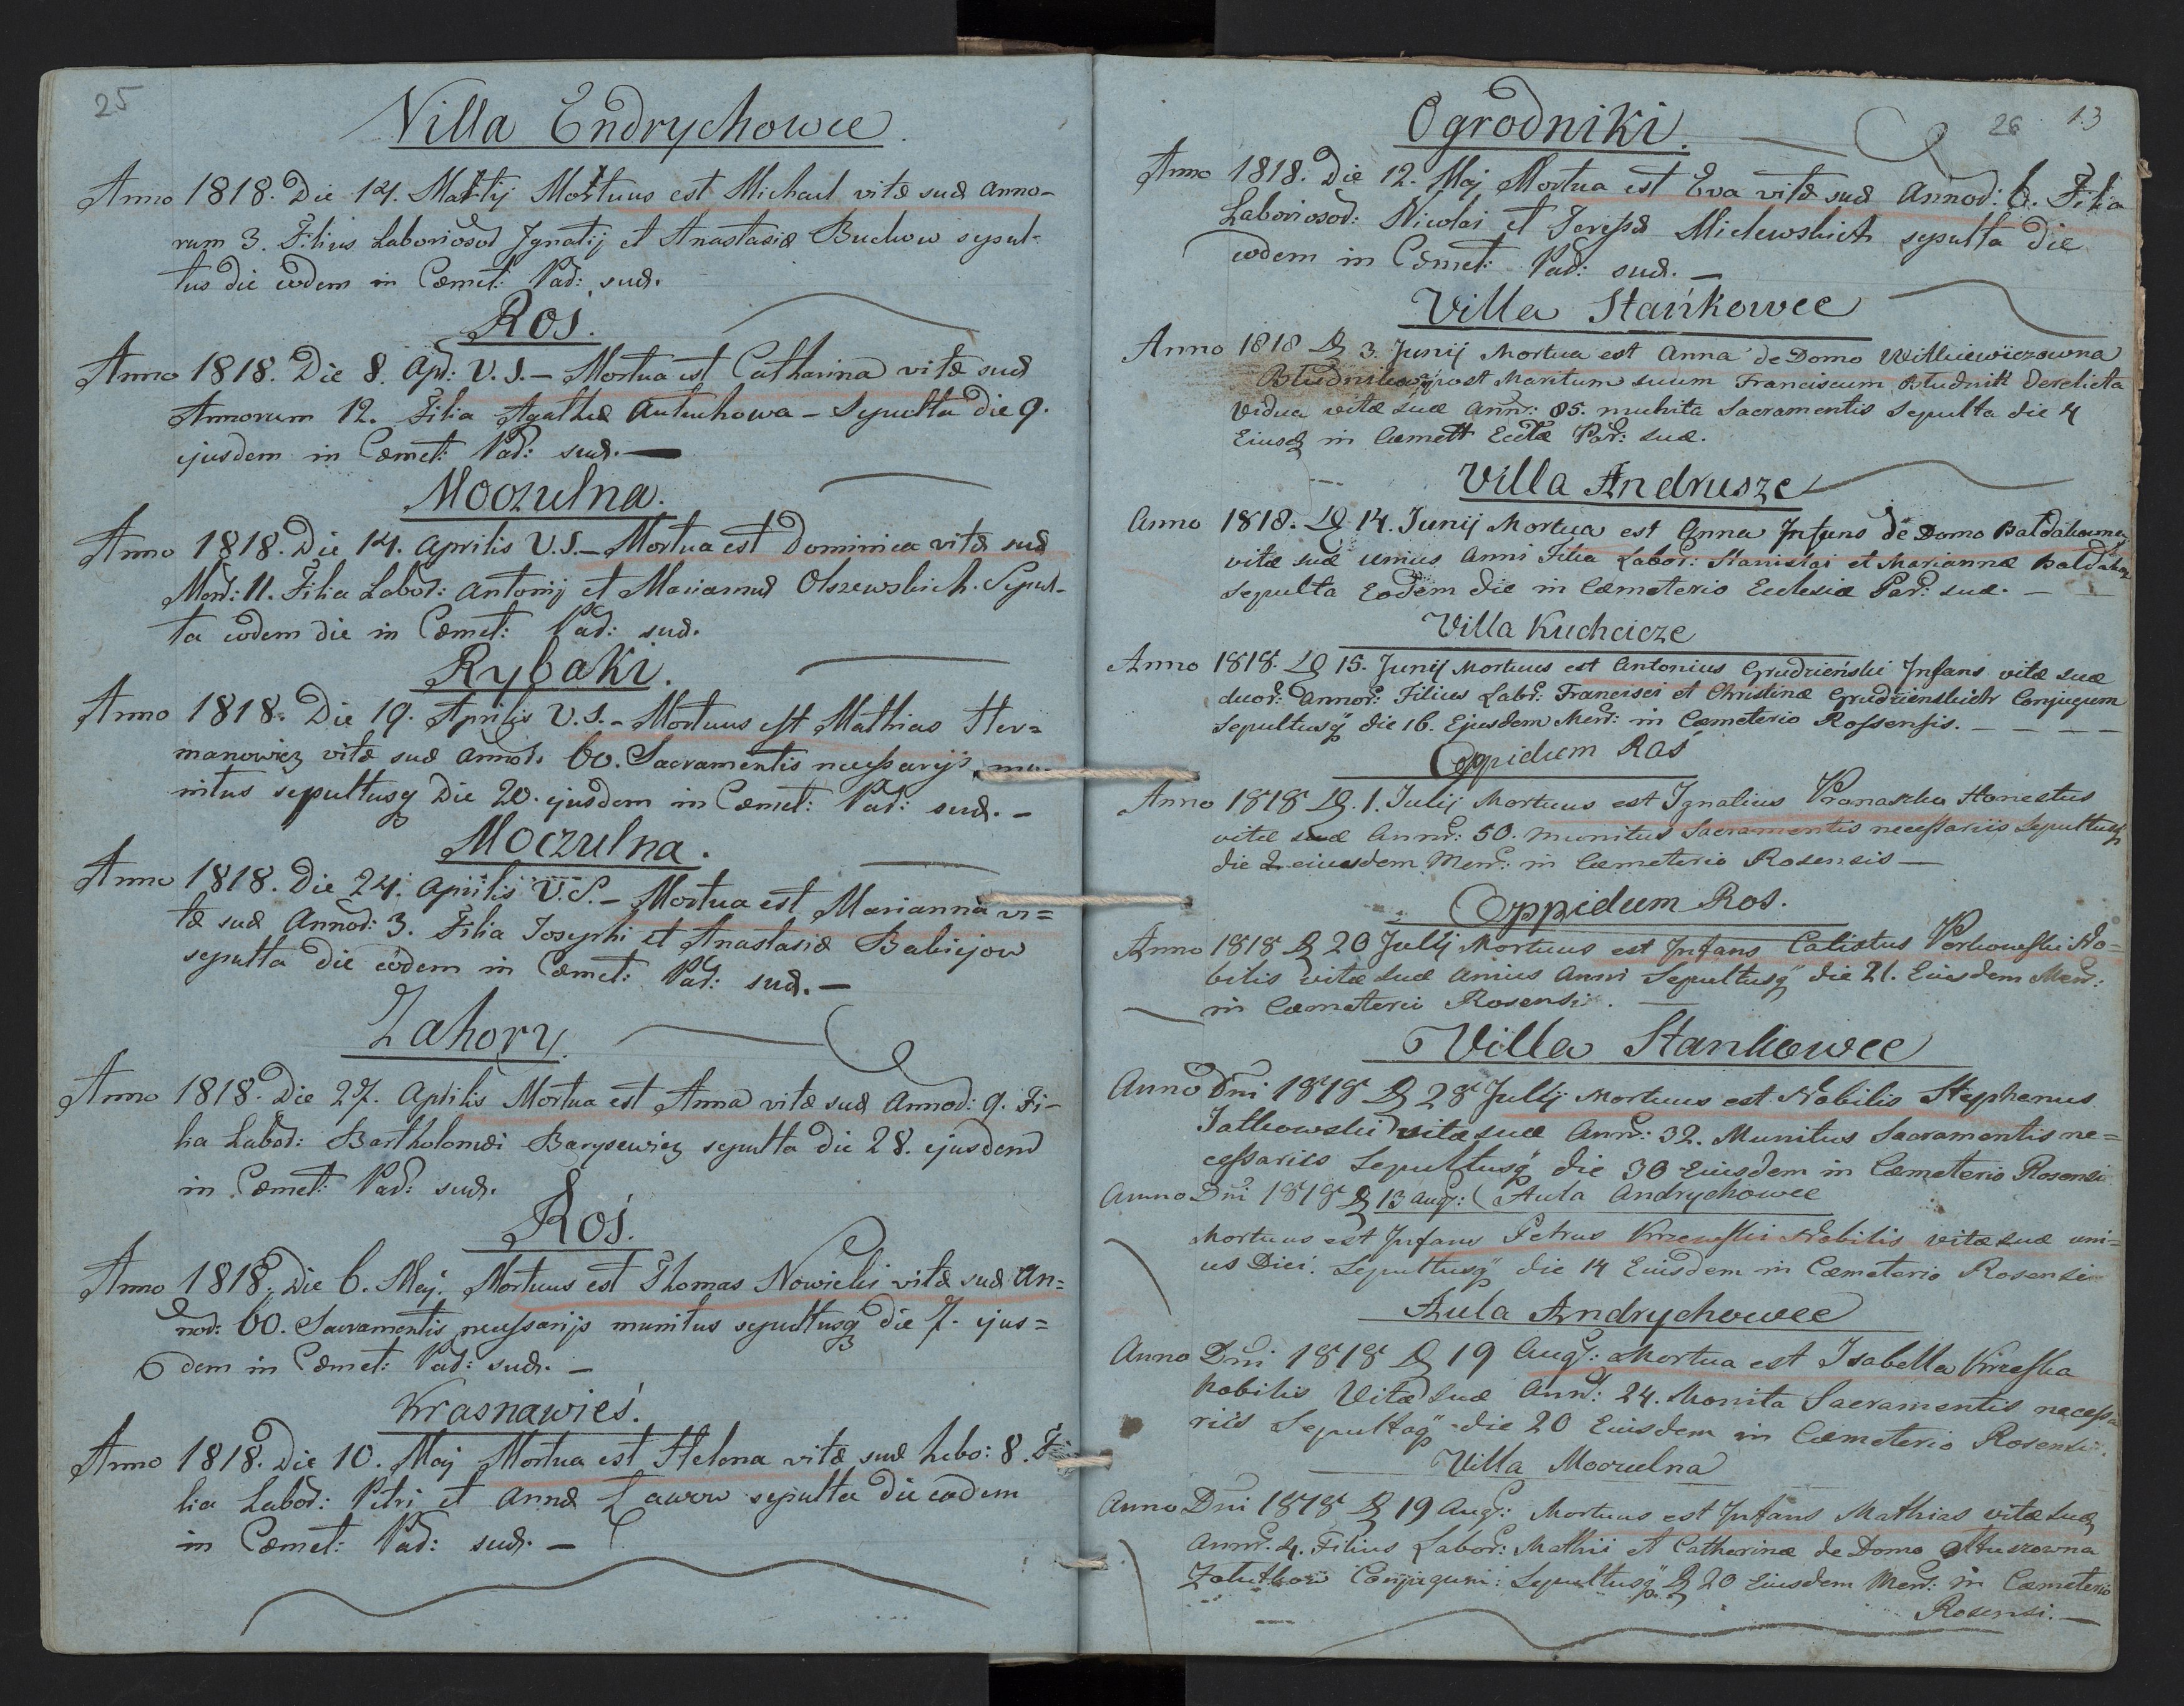 25
Villa Endrychowce.
Anno 1818. Die 14. Martij Mortuus est Michael vitæ suæ anno-
rum 3. Filius Laboriosor Jgnatij et Anastasiæ Buckow sepul-
tus die eodem in Cæmet: Par: suæ.
Roś.
Anno 1818. Die 8. Apr: V.S. – Mortua est Catharina vitæ suæ
Annorum 12. Filia Agathæ Antuchowa – Sepulta die 9.
ejusdem in Cæmet: Par: suæ. —
Moczulna.
Anno 1818. Die 14. Aprilis V.S. – Mortua est Dominica vitæ suæ
Men: 11. Filia Labor: Antonij et Mariannæ Olszewskich. Sepul-
ta eodem die in Cæmet: Par: suæ.
Rybaki.
Anno 1818. Die 19. Aprilis V.S. – Mortuus est Mathias Her=
manowicz vitæ suæ annor: 60. Sacramentis necessarijs mu-
nitus sepultusq die 20. ejusdem in Cæmet: Par: suæ. –
Moczulna.
Anno 1818. Die 24. Aprilis V.S. – Mortua est Marianna vi=
tæ suæ Annor: 3. Filia Josephi et Anastasiæ Babiejow
sepulta die eodem in Cæmet: Par: suæ. —
Zahory.
Anno 1818. Die 27. Aprilis Mortua est Anna vitæ suæ Annor: 9. Fi-
lia Labor: Bartholomæi Barysewicz sepulta die 28. ejusdem
in Cæmet: Par: suæ.
Roś.
Anno 1818. Die 6. Maj. Mortuus est Thomas Nowicki vitæ suæ An=
nor: 60. Sacramentis necessarijs munitus sepultusq die 7. ejus=
dem in Cæmet: Par: suæ. –
Krasnawieś.
Anno 1818. Die 10. Maj Mortua est Helena vitæ suæ hebo: 8. Fi
lia Labor: Petri et Annæ Ławow sepulta die eodem
in Cæmet: Par: suæ. –
26 13
Ogrodniki.
Anno 1818. Die 12. Maj Mortua est Eva vitæ suæ Annor: 6. Filia
Laboriosor: Nicolai et Teressæ Milewskich sepulta die
eodem in Cæmet: Par: suæ. –
Villa Stańkowce
Anno 1818 D 3. Junij Mortua est Anna de Domo Witkiewiczowna
Błudnikowa post Maritum suum Franciscum Błudnik derelicta
Vidua vitæ suæ Ann: 85. munita Sacramentis Sepulta die 4
Eiusd in Cæmett Eccłæ Par: suæ.
Villa Andrusze
Anno 1818. D 14. Junij Mortua est Anna Jnfans de Domo Bałdahowna
vitæ suæ unius Anni Filia Labor: Stanislai et Mariannæ Bałdahow
Sepulta Eodem die in Cæmeterio Ecclesiæ Par: suæ. –
Villa Kuchcicze
Anno 1818. D 15. Junij Mortuus est Antonius Grudzieński Jnfans vitæ suæ
duor: Annor: Filius Labr: Francisci et Christinæ Grudzieńskich Conjugum
Sepultusq die 16. Ejusdem Men: in Cæmeterio Rossensis. – – – –
Oppidum Roś
Anno 1818 D. 1. Julij Mortuus est Ignatius Pronaszko Honestus
vitæ suæ Annr: 50. munitus Sacramentis necessariis Sepultusq
die 2 eiusdem Men: in Cæmeterio Rosensis —
Oppidum Ros.
Anno 1818 D 20 Julij Mortuus est Jnfans Calixtus Perkowski No=
bilis vitæ suæ unius Anni Sepultusq die 21. Eiusdem Men:
in Cæmeterio Rosensi. —
Villa Stankowce
Anno Dni 1818 D 28 Julij Mortuus est Nobilis Stephanus
Jatkowski vitæ suæ Ann: 32. Munitus Sacramentis ne=
cessariis Sepultusq die 30 Eiusdem in Cæmeterio Rosensi
Anno Dni 1818 D 13 Aug: Aula Andrychowce
Mortuus est Jnfans Petrus Krzewski Nobilis vitæ suæ uni=
us Diei. Sepultusq die 14 Eiusdem in Cæmeterio Rosensi
Aula Andrychowce
Anno Dni 1818 D 19 Aug: Mortua est Isabella Krzeska
Nobilis Vitæ suæ Ann: 24. Monita Sacramentis necessa
riis Sepultaq die 20 Eiusdem in Cæmeterio Rosensi.
Villa Moczulna
Anno Dni 1818 D 19 Aug: Mortuus est Jnfans Mathias vitæ suæ
Annr. 4. Filius Labor: Mathii et Catherinæ de Domo
Conjugum: Sepultusq D 20 Eiusdem Men: in Cæmeterio
Rosensi. —